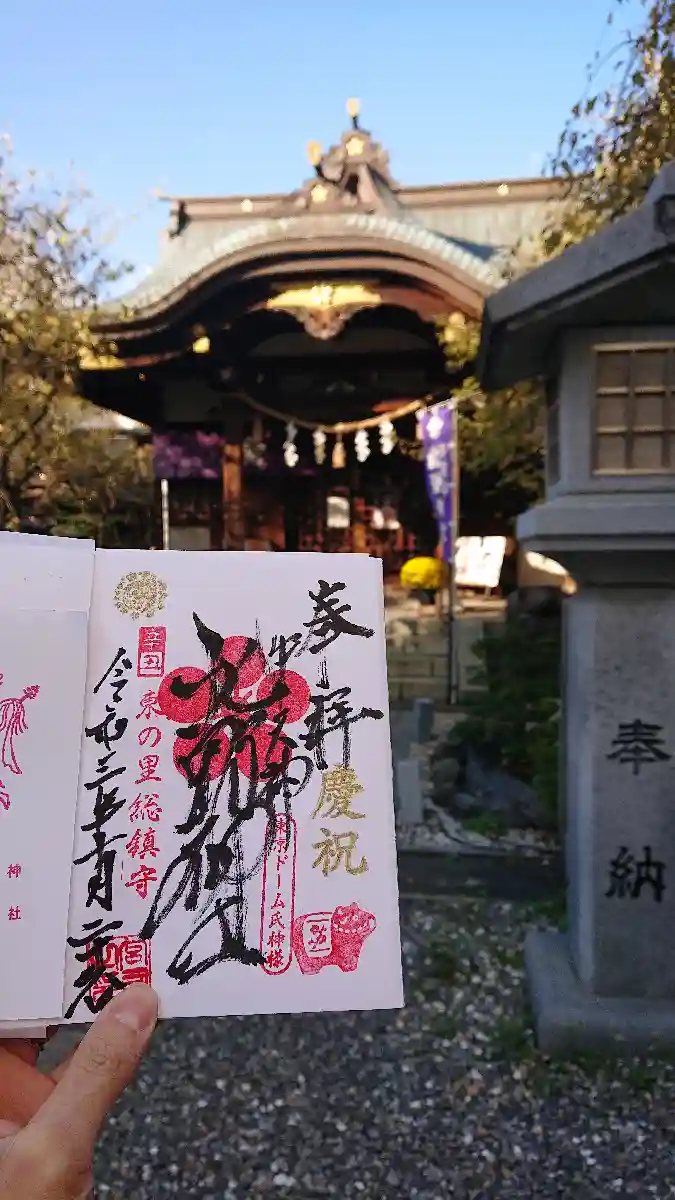 奉拝
慶祝
牛天神
北野神社
東京ドーム氏神様
辛丑
東の里総鎮守
令和三年
神社
奉納